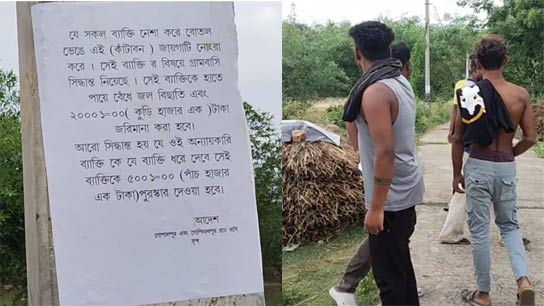 যে সকল ব্যাক্তি নেশা করে বোতল
ভেঙে এই (কাঁটাবন ) জায়গাটি নোংরা
করে । সেই ব্যাক্তি র বিষয়ে গ্রামবাসি
সিদ্ধান্ত নিয়েছে । সেই ব্যাক্তিকে হাতে
পায়ে বেঁধে জল বিছাতি এবং
২০০০১=০০( কুড়ি হাজার এক )টাকা
জরিমানা করা হবে।
আরো সিদ্ধান্ত হয় যে ওই অন্যায়কারি
ব্যাক্তি কে যে ব্যাক্তি ধরে দেবে সেই
ব্যাক্তিকে ৫০০১=০০ (পাঁচ হাজার
এক টাকা)পুরস্কার দেওয়া হবে।
আদেশ
গোপালপুর এবং গোপিনাথপুর গ্রাম বাসি
বৃন্দ